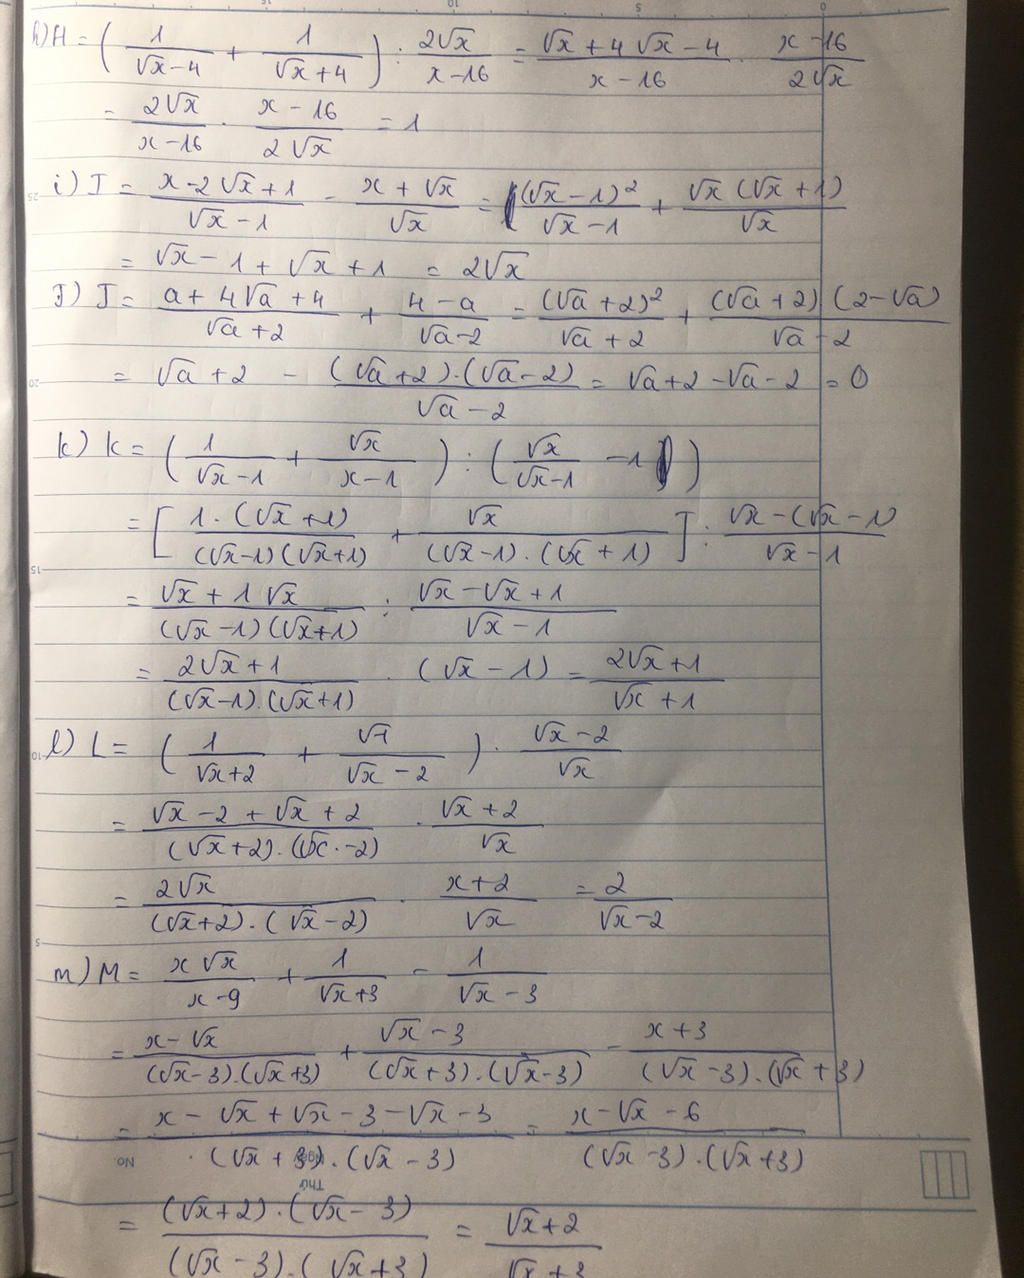 h) H = ( 1/(√x-4) + 1/(√x+4) ) : 2√x/(x-16) = (√x+4 √x-4)/(x-16) · (x-16)/(2√x)
= 2√x/(x-16) · (x-16)/(2√x) = 1
i) I = (x-2√x+1)/(√x-1) - (x+√x)/√x = (√x-1)²/(√x-1) + √x(√x+1)/√x
= √x-1+√x+1 = 2√x
J) J = (a+4√a+4)/(√a+2) + (4-a)/(√a-2) = (√a+2)²/(√a+2) + (√a+2)(2-√a)/(√a-2)
= √a+2 - (√a+2).(√a-2)/(√a-2) = √a+2-√a-2 = 0
k) k = ( 1/(√x-1) + √x/(x-1) ) : ( √x/(√x-1) -1 )
= [ 1.(√x+1)/((√x-1)(√x+1)) + √x/((√x-1).(√x+1)) ] : (√x-(√x-1))/(√x-1)
= (√x+1 √x)/((√x-1)(√x+1)) : (√x-√x+1)/(√x-1)
= (2√x+1)/((√x-1).(√x+1)) · (√x-1) = (2√x+1)/(√x+1)
l) L = ( 1/(√x+2) + √1/(√x-2) ) · (√x-2)/√x
= (√x-2+√x+2)/((√x+2).(√x.-2)) · (√x+2)/√x
= 2√x/((√x+2).(√x-2)) · (x+2)/√x = 2/(√x-2)
m) M = x√x/(x-9) + 1/(√x+3) - 1/(√x-3)
= (x-√x)/((√x-3).(√x+3)) + (√x-3)/((√x+3).(√x-3)) - (x+3)/((√x-3).(√x+3))
= (x-√x+√x-3-√x-3)/((√x+3).(√x-3)) = (x-√x-6)/((√x-3).(√x+3))
= (√x+2).(√x-3)/((√x-3).(√x+3)) = (√x+2)/(√x+3)
No
Thứ
Ngày
0
5
10
15
5
10
15
20
25